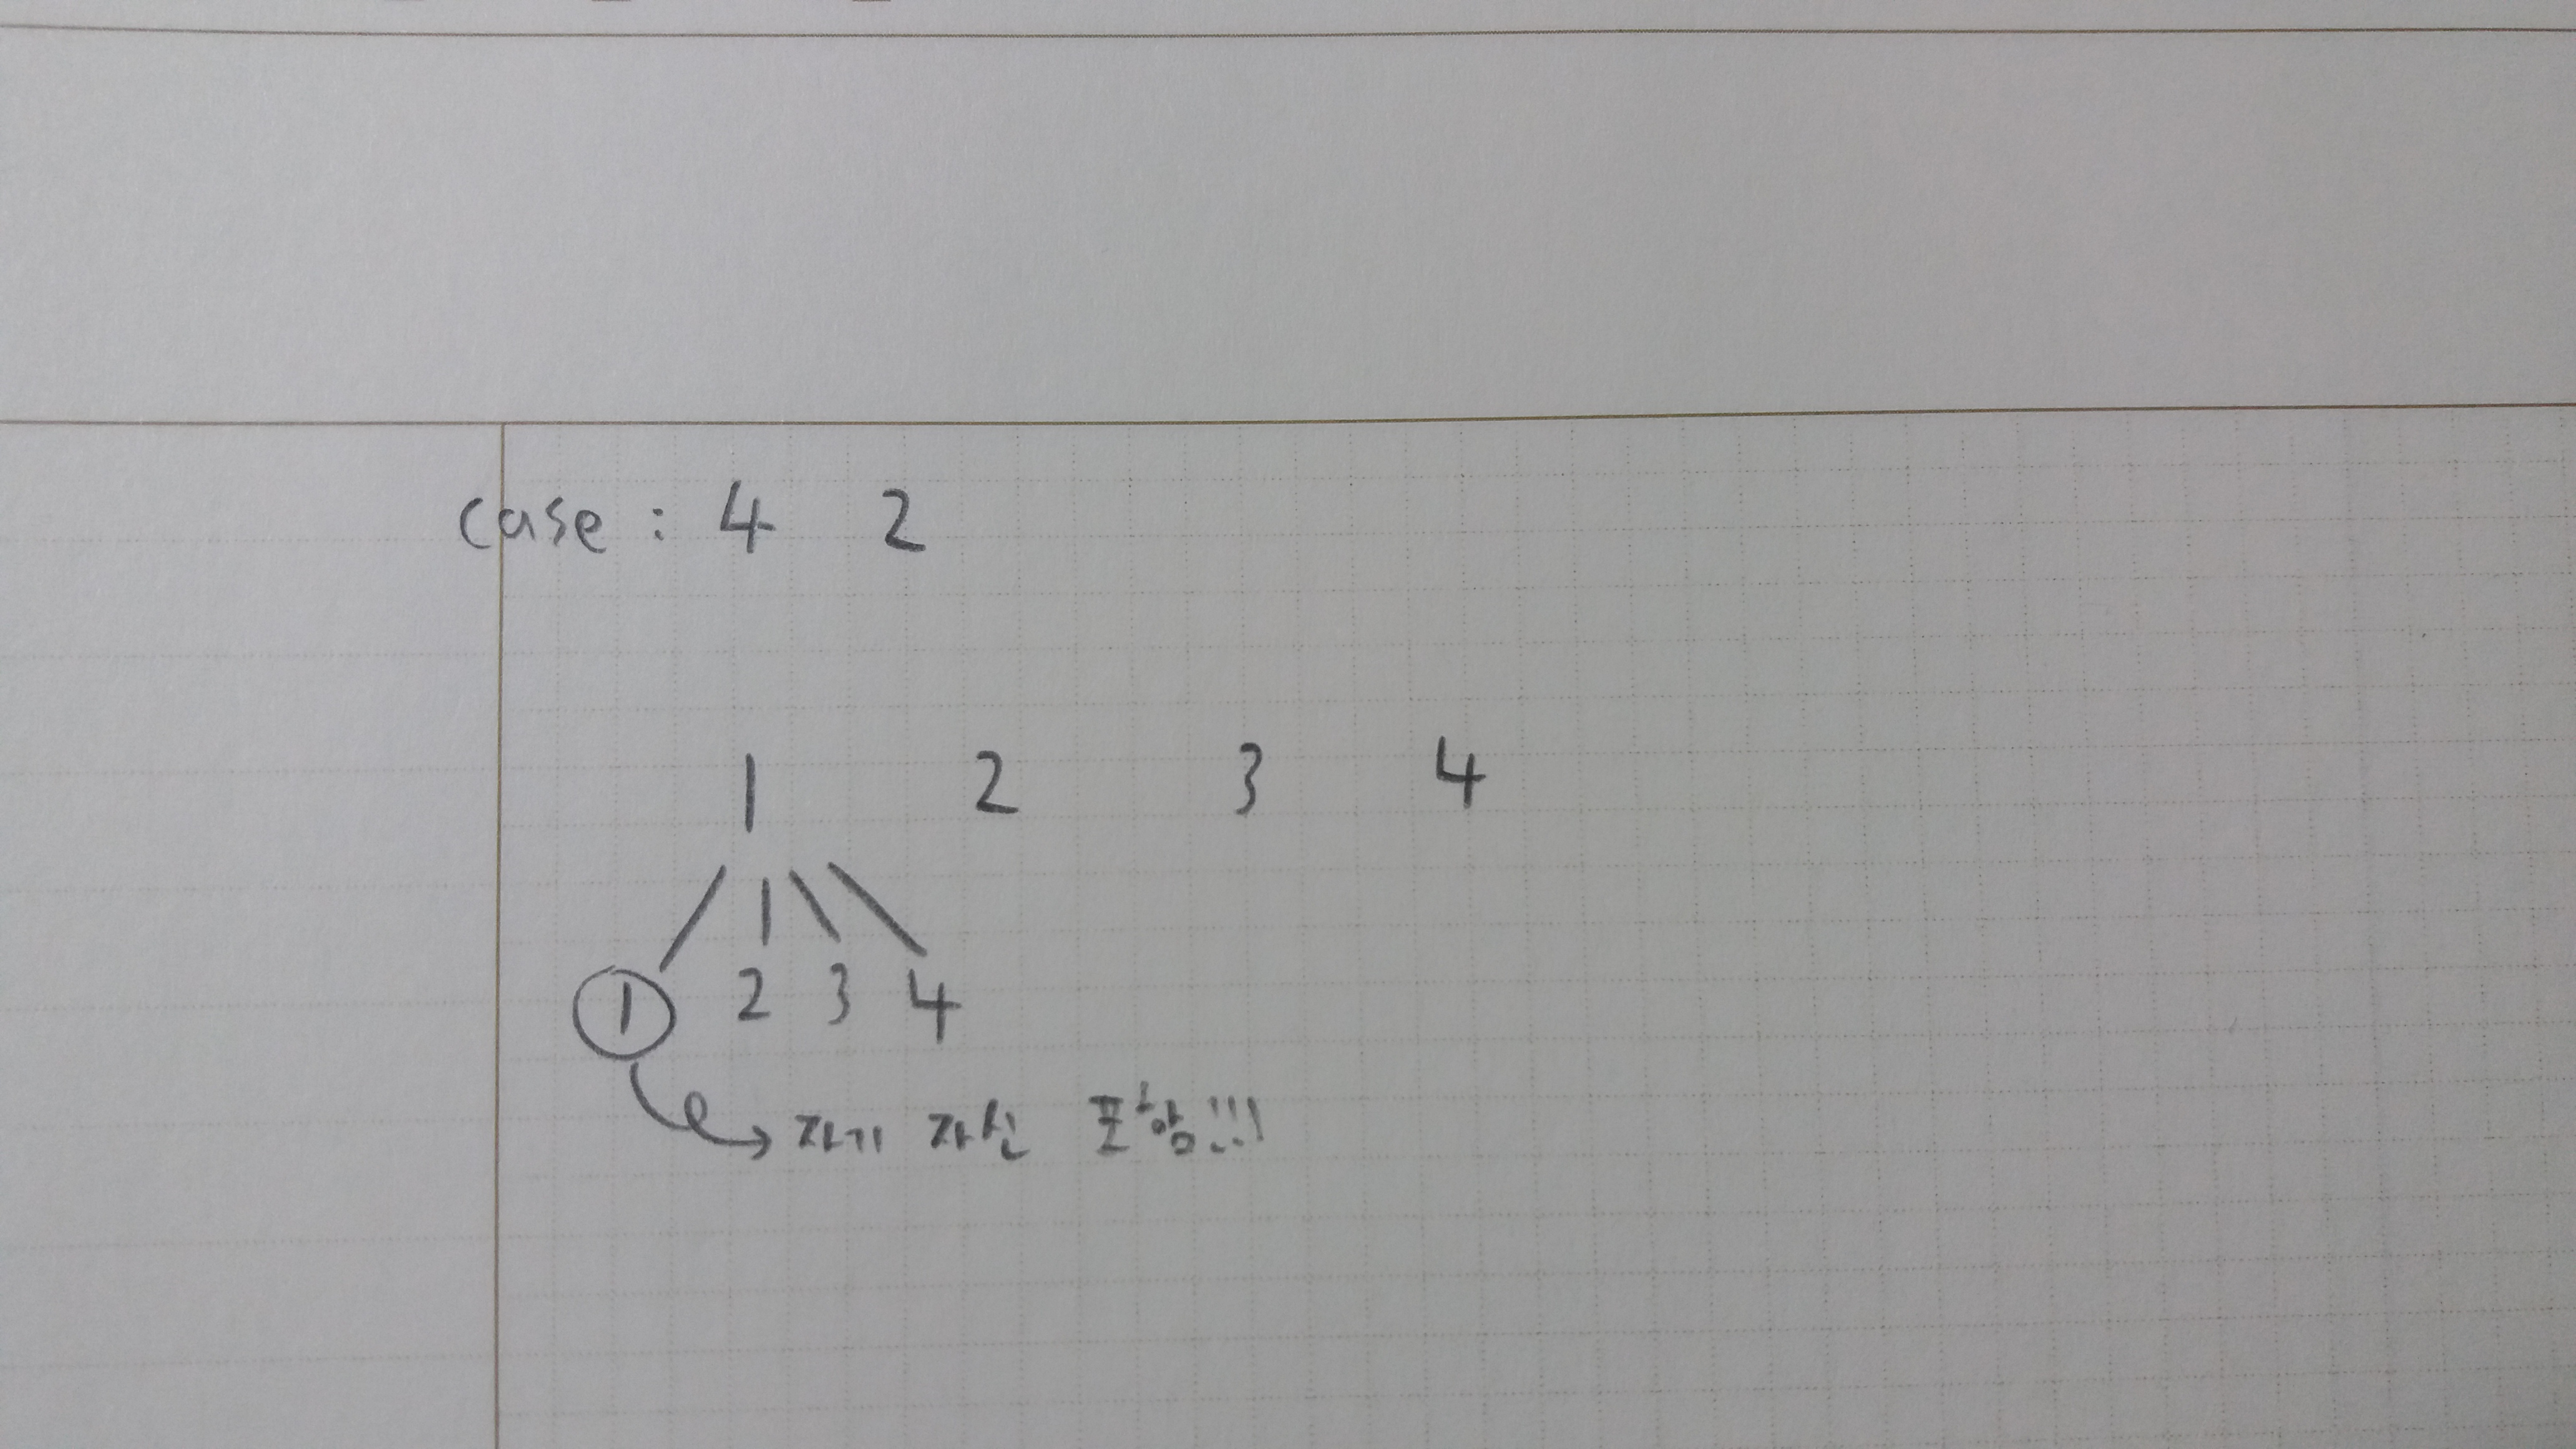 case : 4 2
1 2 3 4
1 2 3 4
자기 자신 포함!!!